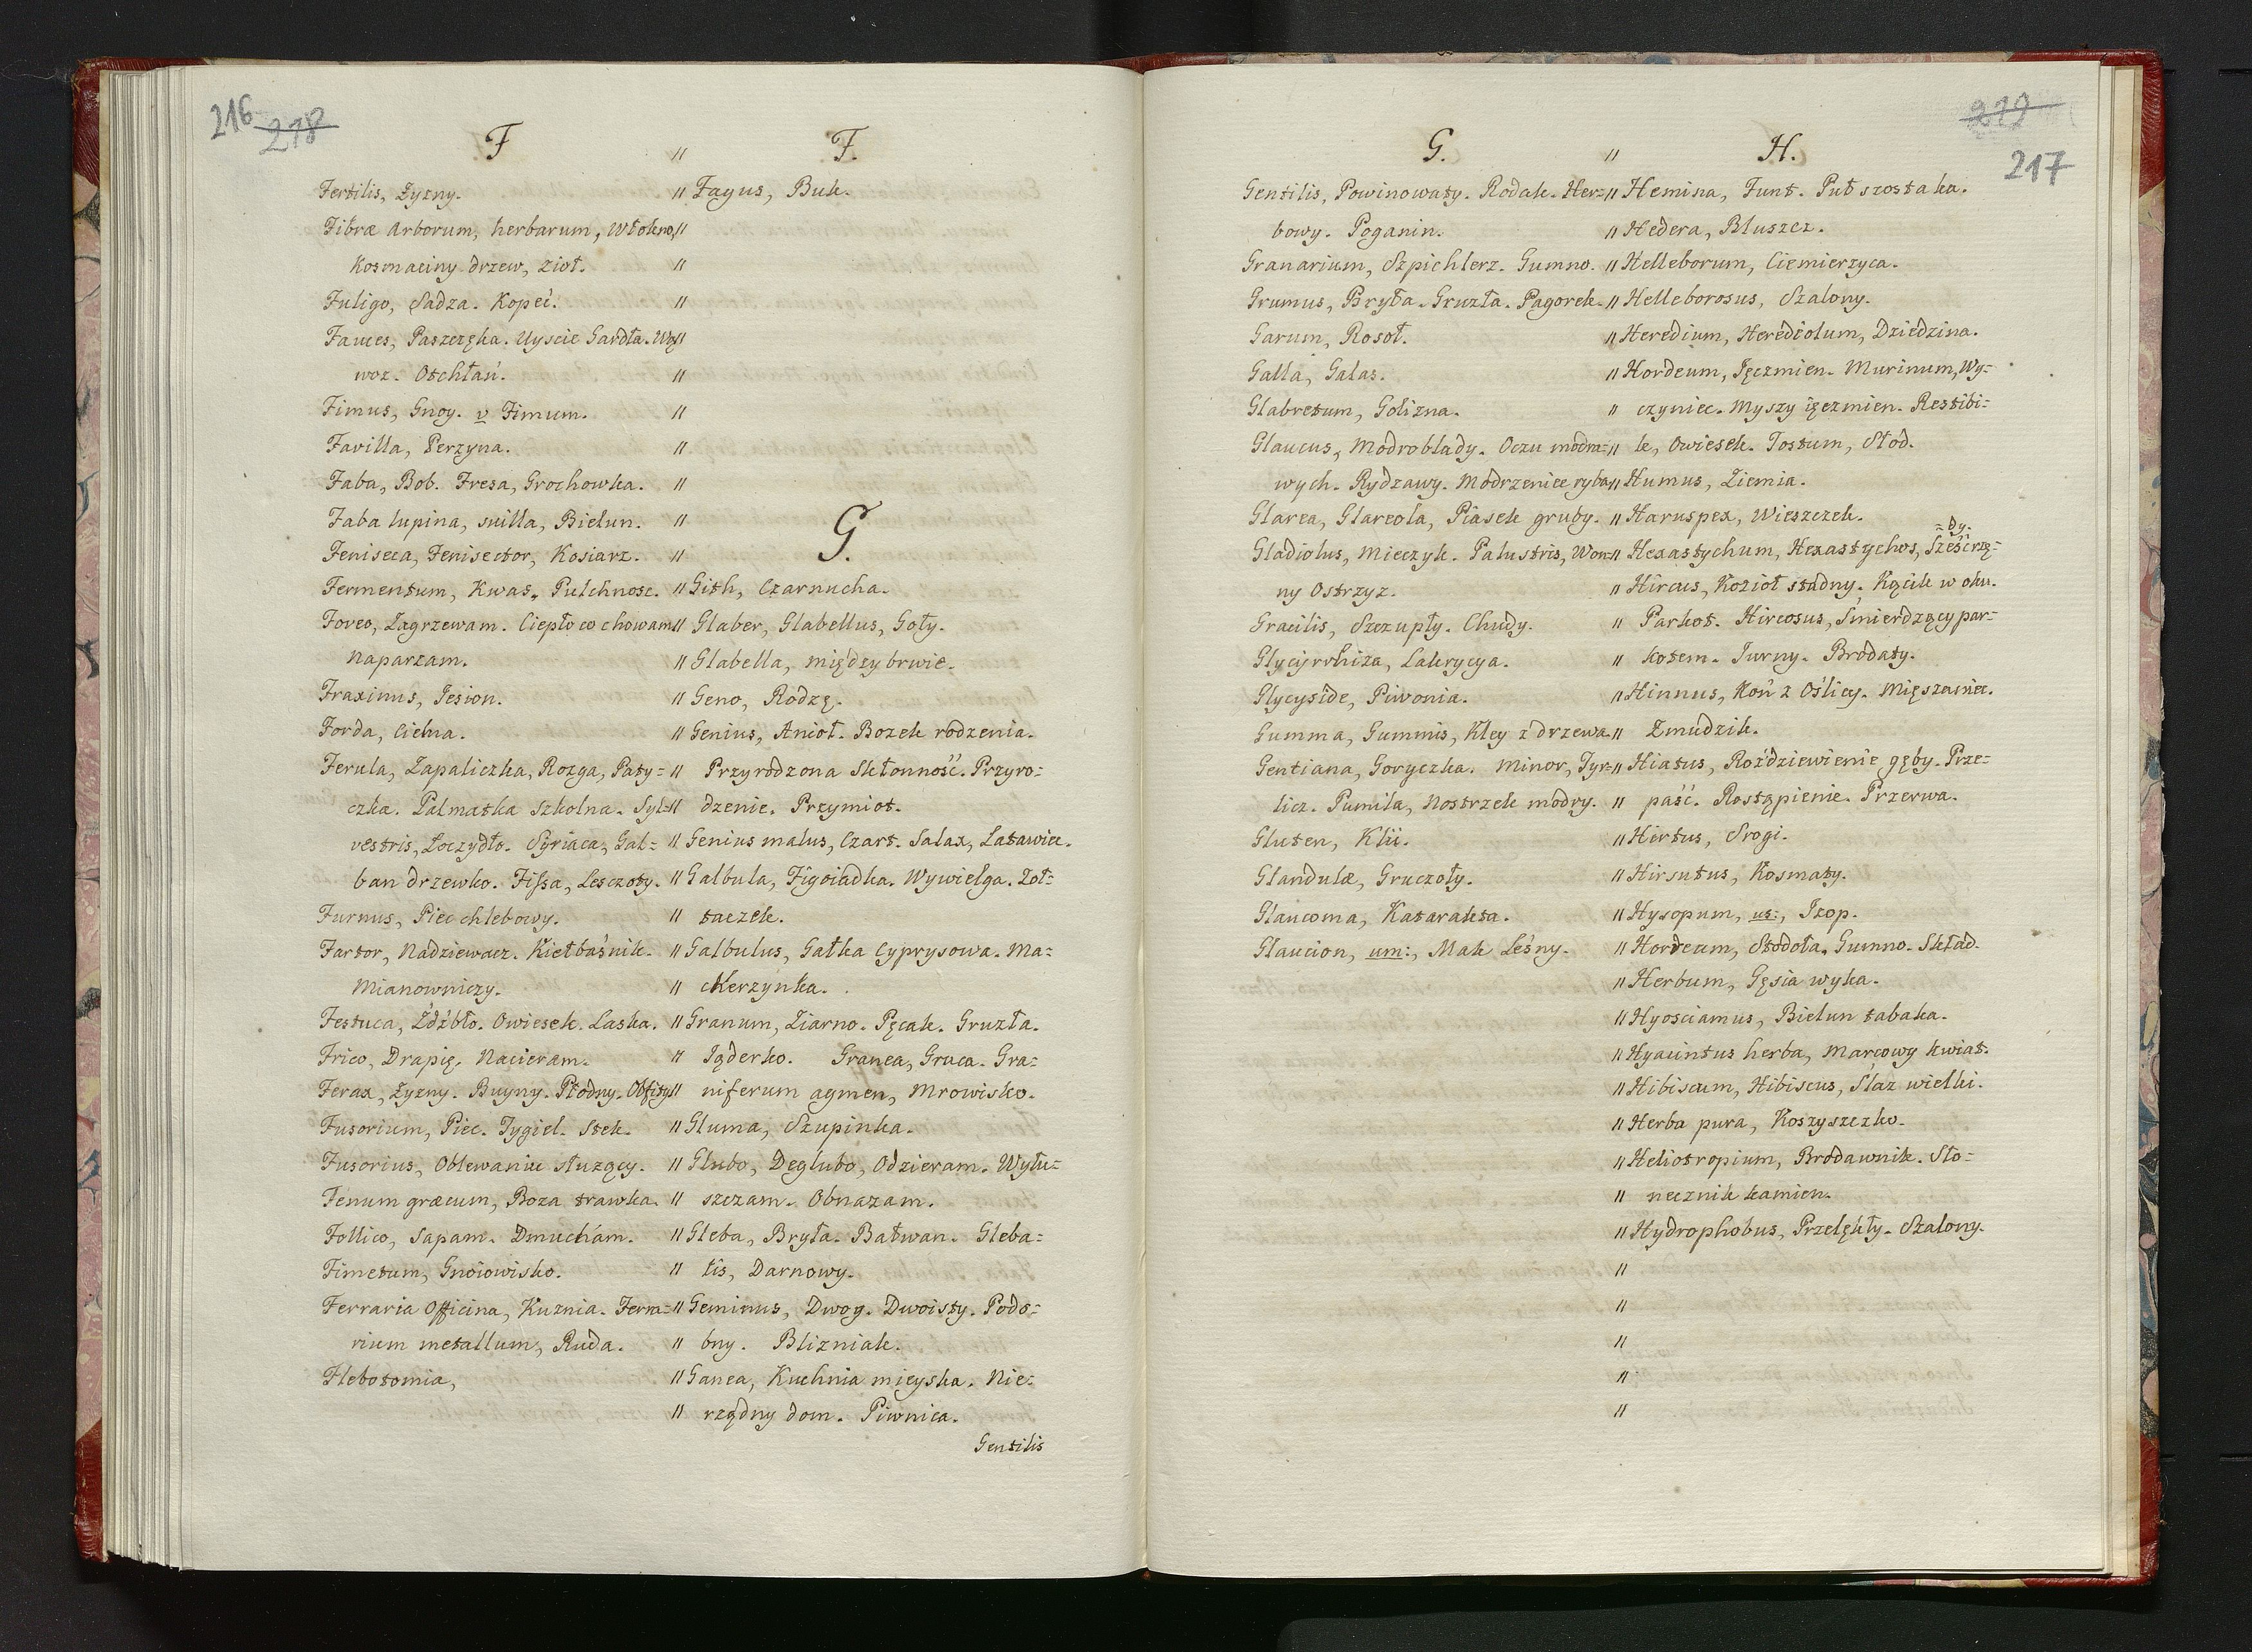 216 218
F
Fertilis, Zyzny.
Fibræ arborum, herbarum, Włokno,
Kosmaciny drzew, zioł.
Fuligo, Sadza. Kopeć.
Fauces, Paszczęka. Uyscie Gardła. Wą
woz. Otchłań.
Fimus, Gnoy. v Fimum.
Favilla, Perzyna.
Faba, Bob. Fresa, Grochowka.
Faba lupina, suilla, Bielun.
Feniseca, Fenisector, Kosiarz.
Fermentum, Kwas, Pulchnosc.
Foveo, Zagrzewam. Ciepło co chowam
naparzam.
Fraxinus, Jesion.
Forda, Cielna.
Ferula, Zapaliczka, Rozga, Paty=
czka. Palmatka szkolna. Syl=
vestris, Zoczydło. Syriaca, Gal=
ban drzewko. Fissa, Lesczoty.
Furnus, Piec chlebowy.
Fartor, Nadziewacz. Kiełbaśnik.
Mianowniczy.
Festuca, Źdźbło. Owiesek. Laska.
Frico, Drapię. Nacieram.
Ferax, Zyzny. Buyny. Płodny. Obfity
Fusorium, Piec. Tygiel. Stek.
Fusorius, Oblewaniu służący.
Fenum græcum, Boza trawka.
Follico, Sapam. Dmucham.
Fimetum, Gnoiowisko.
Ferraria Officina, Kuznia. Ferra=
rium metallum, Ruda.
Flebotomia,
F.
Fagus, Buk.
G.
Gith, Czarnucha.
Glaber, Glabellus, Goły.
Glabella, między brwie.
Geno, Rodzę.
Genius, Anioł. Bozek rodzenia.
Przyrodzona Skłonność. Przyro=
dzenie. Przymiot.
Genius malus, Czart. Salax, Latawiec.
Galbula, Figoiadka. Wywielga. Zoł=
taczek.
Galbulus, Gałka Cyprysowa. Ma=
ckerzynka.
Granum, Ziarno. Pęcak. Gruzła.
Jąderko. Granea, Gruca. Gra=
niferum agmen, Mrowisko.
Gluma, Szupinka.
Glubo, Deglubo, Odzieram. Wyłu=
szczam. Obnazam.
Gleba, Bryła. Bałwan. Gleba=
lis, Darnowy.
Geminus, Dwoy. Dwoisty. Podo=
bny. Blizniak.
Ganea, Kuchnia mieyska. Nie=
rządny dom. Piwnica.
Gentilis
219
217
G.
Gentilis, Powinowaty. Rodak. Her=
bowy. Poganin.
Granarium, Szpichlerz. Gumno.
Grumus, Bryła. Gruzła. Pagorek.
Garum, Rosoł.
Galla, Galas.
Glabretum, Golizna.
Glaucus, Modroblady. Oczu modra=
wych. Rydzawy. Modrzeniec ryba
Glarea, Glareola, Piasek gruby.
Gladiolus, Mieczyk. Palustris, Won=
ny Ostrzyz.
Gracilis, Szczupły. Chudy.
Glycyrrhiza, Lakrycya.
Glycyside, Piwonia.
Gumma, Gummis, Kley z drzewa.
Gentiana, Goryczka. Minor, Tyr=
licz. Pumila, Nostrzek modry.
Gluten, Klii.
Glandulæ, Gruczoły.
Glaucoma, Katarakta.
Glaucion, um:, Mak Leśny.
H.
Hemina, Funt. Puł szostaka.
Hedera, Bluszcz.
Helleborum, Ciemierzyca.
Helleborosus, Szalony.
Heredium, Herediolum, Dziedzina.
Hordeum, Jęczmien. Murinum, Wy=
czyniec. Myszy ięczmien. Restibi=
le, Owiesek. Tostum, Słod.
Humus, Ziemia.
Haruspex, Wieszczek.
Hexastychum, Hexastychos, Sześćrzę=
=dy.
Hircus, Kozioł stadny. Kącik w oku.
Parkot. Hircosus, Smierdzący par=
kotem. Jurny. Brodaty.
Hinnus, Koń z Oślicy. Mięszaniec.
Zmudzik.
Hiatus, Roździewienie gęby. Prze=
paść. Rostąpienie. Przerwa.
Hirtus, Srogi.
Hirsutus, Kosmaty.
Hysopum, us:, Izop.
Horreum, Stodoła. Gumno. Skład.
Herbum, Gęsia wyka.
Hyosciamus, Bielun tabaka.
Hyacintus herba, Marcowy kwiat.
Hibiscum, Hibiscus, Slaz wielki.
Herba pura, Koszyszczko.
Heliotropium, Brodawnik. Sło=
necznik kamien.
Hydrophobus, Przelękły. Szalony.